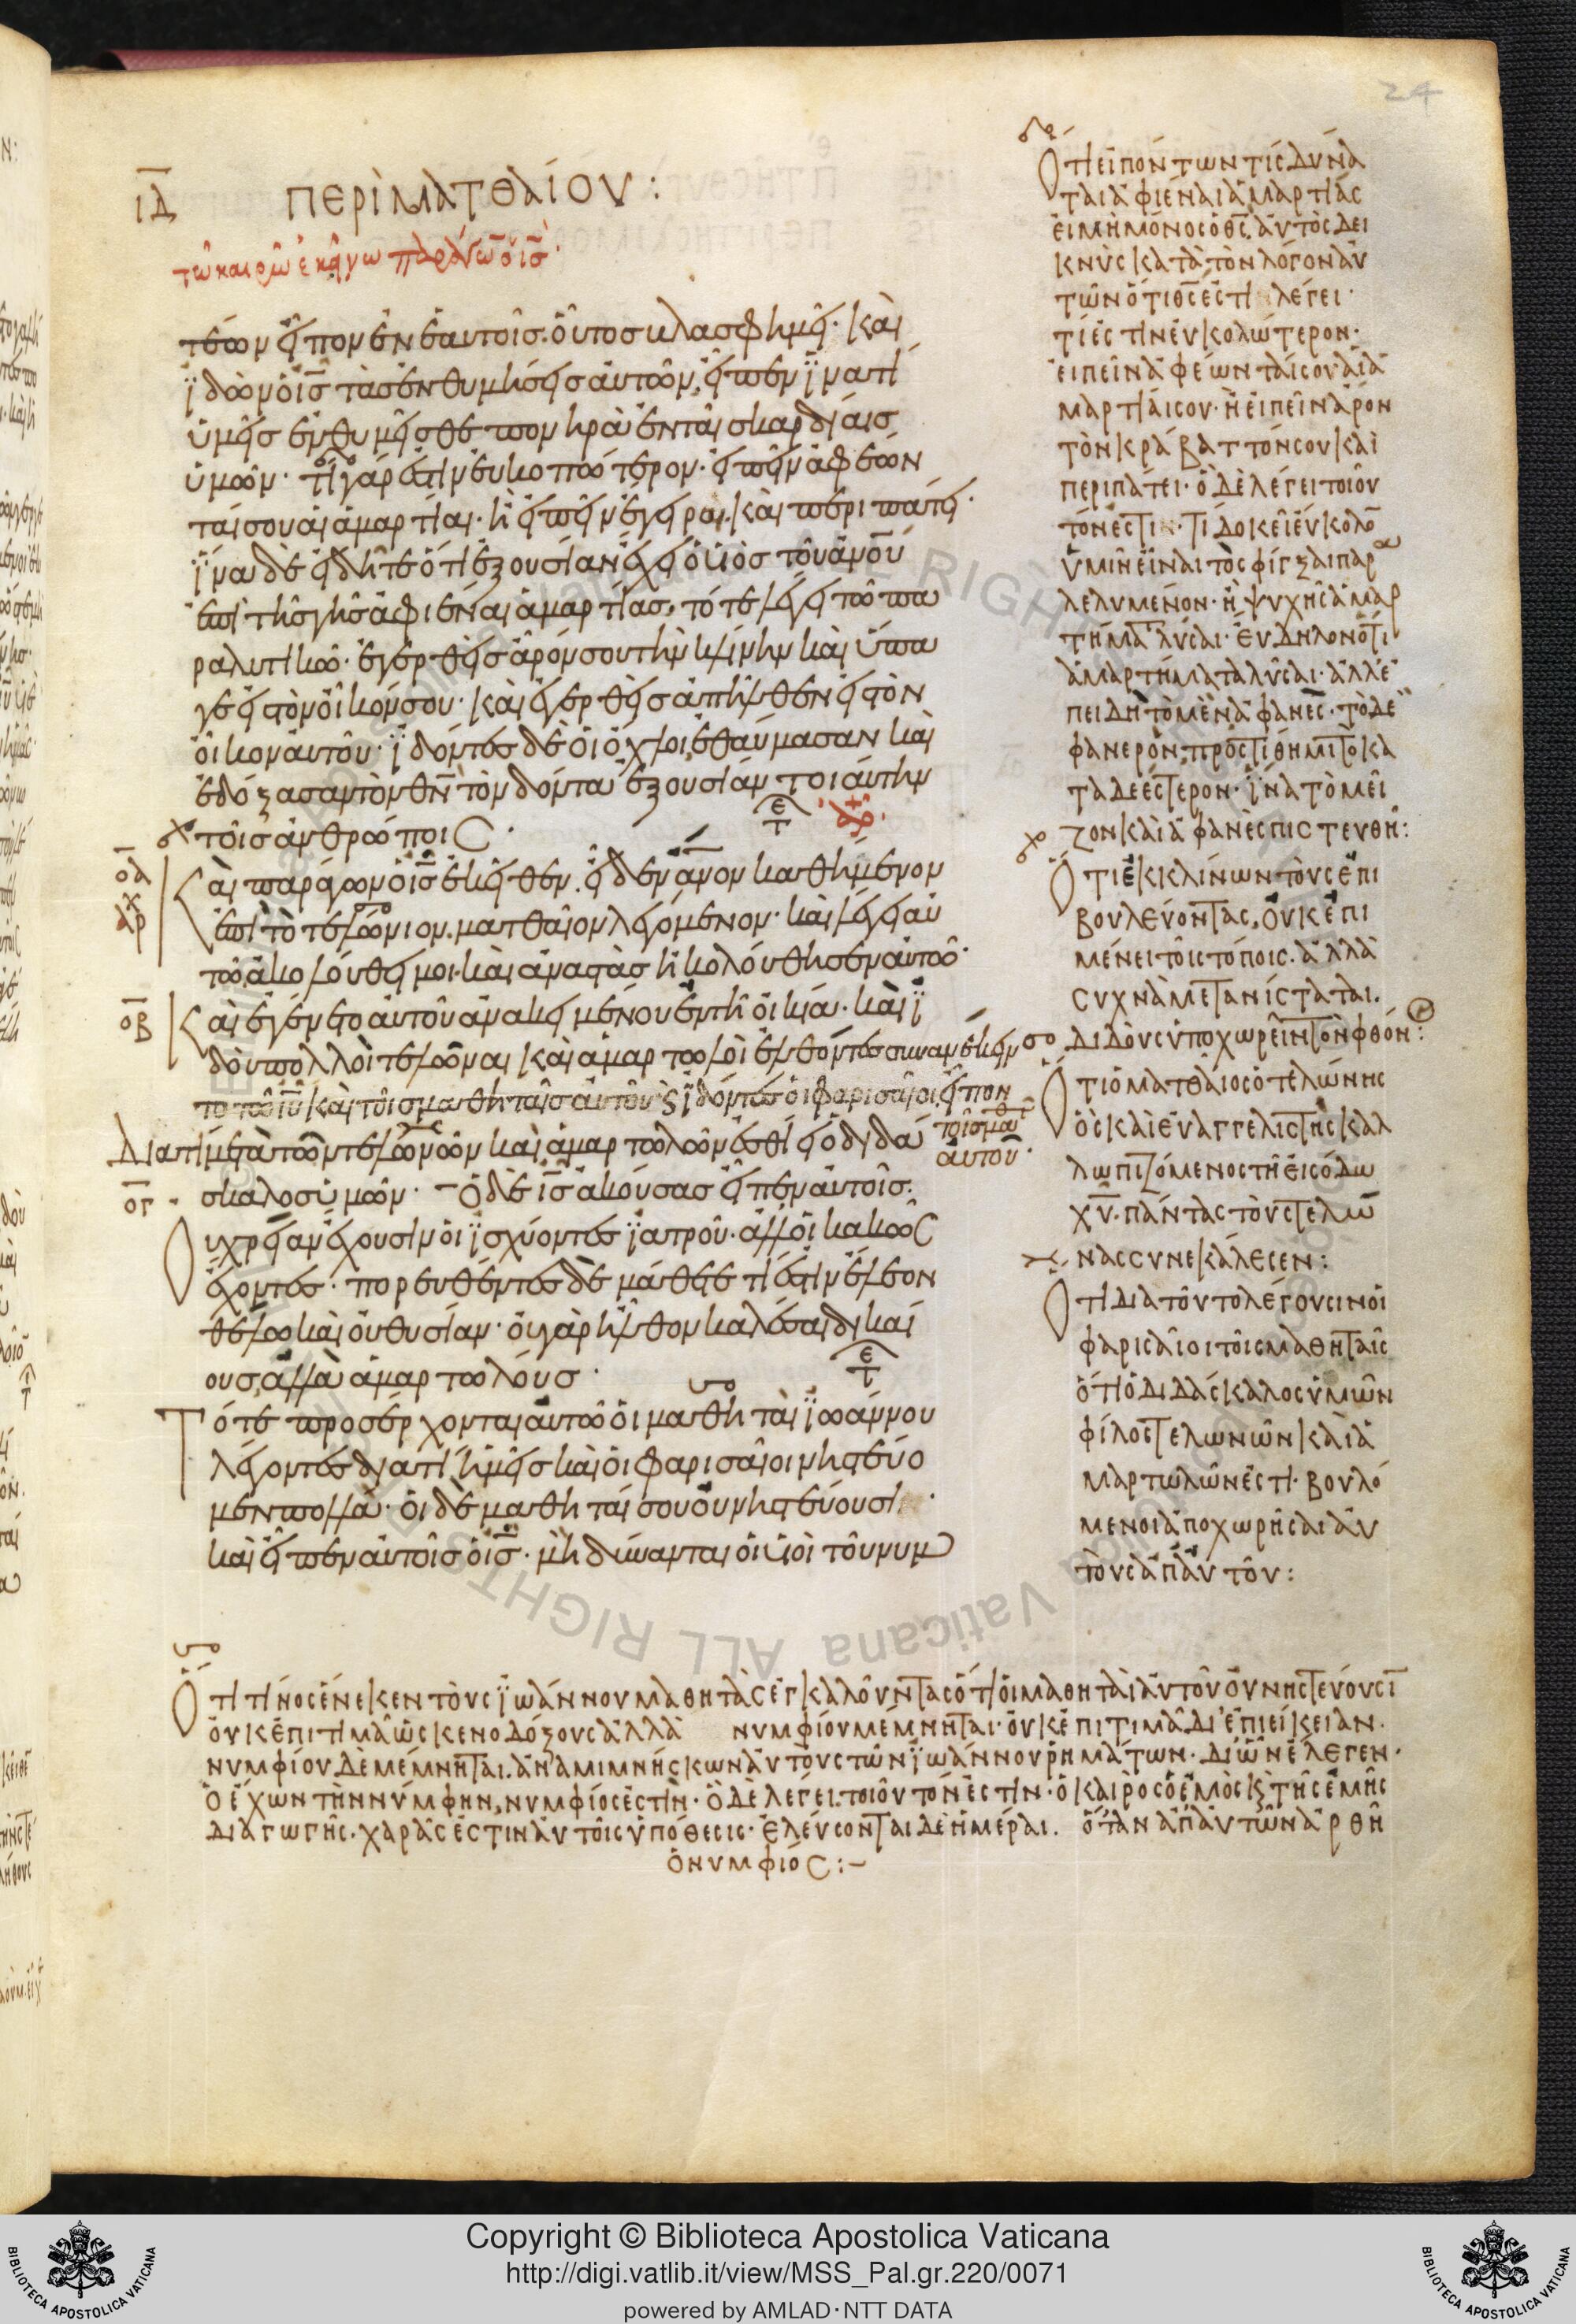 24
ΙΔ ΠΕΡῚ ΜΑΤΘΑΊΟΥ :
τῶ καιρῶ ἐκείνω παράγων ὁ ις
τέων εἶπον ἐν ἑαυτοῖς· οὗτος βλασφημεῖ· καὶ
ἰδὼν ὁ ις τὰς ἐνθυμήσεις αὐτῶν, εἶπεν ἵνα τί
ὑμεῖς ἐνθυμεῖσθε πονηρὰ ἐν ταῖς καρδίαις
ὑμῶν· τί γάρ ἐστιν εὐκοπώτερον· εἰπεῖν ἀφέων
ταί σου αἱ ἁμαρτίαι· ἢ εἰπεῖν ἔγειραι καὶ περιπάτει·
ἵνα δὲ εἰδῆτε ὅτι ἐξουσίαν ἔχει ὁ υἱὸς τοῦ ανου
ἐπὶ τῆς γῆς ἀφιέναι ἁμαρτίας, τότε λέγει τῶ πα
ραλυτικῶ· ἐγερθεὶς ἆρόν σου τὴν κλίνην καὶ ὕπα
γε εἰς τὸν οἶκόν σου· καὶ ἐγερθεὶς ἀπῆλθεν εἰς τὸν
οἶκον αὐτοῦ· ἰδόντες δὲ οἱ ὄχλοι ἐθαύμασαν καὶ
ἐδόξασαν τὸν θν τὸν δόντα ἐξουσίαν τοιαύτην
τοῖς ἀνθρώποις·
ΟΑ Καὶ παράγων ὁ ις ἐκεῖθεν· εἶδεν ανον καθήμενον
ἐπὶ τὸ τελώνιον, ματθαῖον λεγόμενον· καὶ λέγει αὐ
τῶ ἀκολούθει μοι· καὶ ἀναστὰς ἠκολούθησεν αὐτῶ·
ΟΒ Καὶ ἐγένετο αὐτοῦ ἀνακειμένου ἐν τῆ οἰκία· καὶ ἰ
δοὺ πολλοὶ τελῶναι καὶ ἁμαρτωλοὶ ἐλθόντες συνανέκειν
το τῶ ιυ καὶ τοῖς μαθηταῖς αὐτοῦ· ἰδόντες οἱ φαρισαῖοι εἶπον
τοῖς μαθτ
αὐτοῦ·
Διατί μετὰ τῶν τελωνῶν καὶ ἁμαρτωλῶν ἐσθίει ὁ διδά
ΟΓ σκαλος ὑμῶν· Ὁ δὲ ις ἀκούσας εἶπεν αὐτοῖς·
Οὐ χρείαν ἔχουσιν οἱ ἰσχύοντες ἰατροῦ· ἀλλ' οἱ κακῶς
ἔχοντες· πορευθέντες δὲ μάθετε τί ἐστιν ἔλεον
θέλω καὶ οὐ θυσίαν· οὐ γὰρ ἦλθον καλέσαι δικαί
ους, ἀλλὰ ἁμαρτωλούς·
Τότε προσέρχονται αὐτῶ οἱ μαθηταὶ ἰωάννου
λέγοντες διατί ἡμεῖς καὶ οἱ φαρισαῖοι νηστεύο
μεν πολλά· οἱ δὲ μαθηταί σου οὐ νηστεύουσι·
καὶ εἶπεν αὐτοῖς ὁ ις· μὴ δύνανται οἱ υἱοὶ τοῦ νυμ
Ὅτι εἰπόντων τίς δύνα
ται ἀφιέναι ἁμαρτίας
εἰ μὴ μόνος ὁ θς, αὐτὸς δεί
κνυς κατὰ τὸν λόγον αὐ
τῶν ὅτι θς ἐστι λέγει·
τί ἐστιν εὐκολώτερον·
εἰπεῖν ἀφέωνταί σου αἱ ἁ
μαρτίαι σου· ἢ εἰπεῖν ἆρον
τὸν κράβαττόν σου καὶ
περιπάτει· ὃ δὲ λέγει τοιοῦ
τόν ἐστιν· τί δοκεῖ εὐκολο
ὑμῖν εἶναι τὸ σφίγξαι παρα
λελυμένον· ἢ ψυχῆς ἁμαρ
τήμα λύσαι· εὔδηλον ὅτι
ἁμαρτήματα λύσαι· ἀλλ' ἐ
πειδὴ τὸ μὲν ἀφανες· τὸ δὲ
φανερὸν, προστίθημι το κα
ταδεέστερον· ἵνα τὸ μεῖ
ζον καὶ ἀφανὲς πιστευθῆ :
Ὅτι ἐκκλίνων τοὺς ἐπι
βουλεύοντας, οὐκ ἐπι
μένει τοῖς τόποις· ἀλλὰ
συχνὰ μετανίσταται·
διδοὺς ὑποχωρεῖν τὸν φθόν :
Ὅτι ὁ ματθαῖος ὁ τελώνης
ὁς καὶ εὐαγγελιστὴς καλ
λωπιζόμενος τῆ εἰσόδω
χυ· πάντας τοὺς τελω
νας συνεκάλεσεν :
Ὅτι διὰ τοῦτο λέγουσιν οἱ
φαρισαῖοι τοῖς μαθηταῖς
ὅτι ὁ διδάσκαλος ὑμῶν
φίλος τελωνῶν καὶ ἁ
μαρτωλῶν ἐστι· βουλό
μενοι ἀποχωρῆσαι αὐ
τοὺς ἀπ' αὐτοῦ :
Ὅτι τίνος ἕνεκεν τοὺς ἰωάννου μαθητὰς ἐγκαλοῦντας ὅτι οἱ μαθηταὶ αὐτοῦ οὐ νηστεύουσι
οὐκ ἐπιτιμᾶ ὡς κενοδόξους ἀλλὰ νυμφίου μέμνηται· οὐκ ἐπιτιμᾶ δι' ἐπιείκειαν·
νυμφίου δὲ μέμνηται. ἀναμιμνήσκων αὐτοὺς τῶν ἰωάννου ρημάτων· δι' ὧν ἔλεγεν·
ὁ ἔχων τὴν νύμφην, νυμφίος ἐστὶν· ὃ δὲ λέγει, τοιοῦτόν ἐστιν· ὁ καιρὸς ὁ ἐμὸς κ τῆς ἐμῆς
διαγωγῆς· χαρᾶς ἐστιν αὐτοῖς ὑπόθεσις· ἐλεύσονται δὲ ἡμέραι. ὅταν ἀπ' αὐτῶν ἀρθῆ
ὁ νυμφίος :–
Copyright © Biblioteca Apostolica Vaticana
http://digi.vatlib.it/view/MSS_Pal.gr.220/0071
powered by AMLAD·NTT DATA
BIBLIOTECA APOSTOLICA VATICANA
BIBLIOTECA APOSTOLICA VATICANA